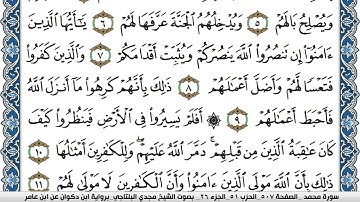 وَيُصْلِحُ بَالَهُمْ ٥ وَيُدْخِلُهُمُ ٱلْجَنَّةَ عَرَّفَهَا لَهُمْ ٦ يَٰٓأَيُّهَا ٱلَّذِينَ
ءَامَنُوٓا۟ إِن تَنصُرُوا۟ ٱللَّهَ يَنصُرْكُمْ وَيُثَبِّتْ أَقْدَامَكُمْ ٧ وَٱلَّذِينَ كَفَرُوا۟
فَتَعْسًا لَّهُمْ وَأَضَلَّ أَعْمَٰلَهُمْ ٨ ذَٰلِكَ بِأَنَّهُمْ كَرِهُوا۟ مَآ أَنزَلَ ٱللَّهُ
فَأَحْبَطَ أَعْمَٰلَهُمْ ٩ ۞ أَفَلَمْ يَسِيرُوا۟ فِى ٱلْأَرْضِ فَيَنظُرُوا۟ كَيْفَ
كَانَ عَٰقِبَةُ ٱلَّذِينَ مِن قَبْلِهِمْ ۚ دَمَّرَ ٱللَّهُ عَلَيْهِمْ ۖ وَلِلْكَٰفِرِينَ أَمْثَٰلُهَا ١٠
ذَٰلِكَ بِأَنَّ ٱللَّهَ مَوْلَى ٱلَّذِينَ ءَامَنُوا۟ وَأَنَّ ٱلْكَٰفِرِينَ لَا مَوْلَىٰ لَهُمْ ١١
سورة محمد _ الصفحة ٥٠٧ _ الحزب ٥١ _ الجزء ٢٦ _ بصوت الشيخ مجدي البلتاجي _ برواية ابن ذكوان عن ابن عامر